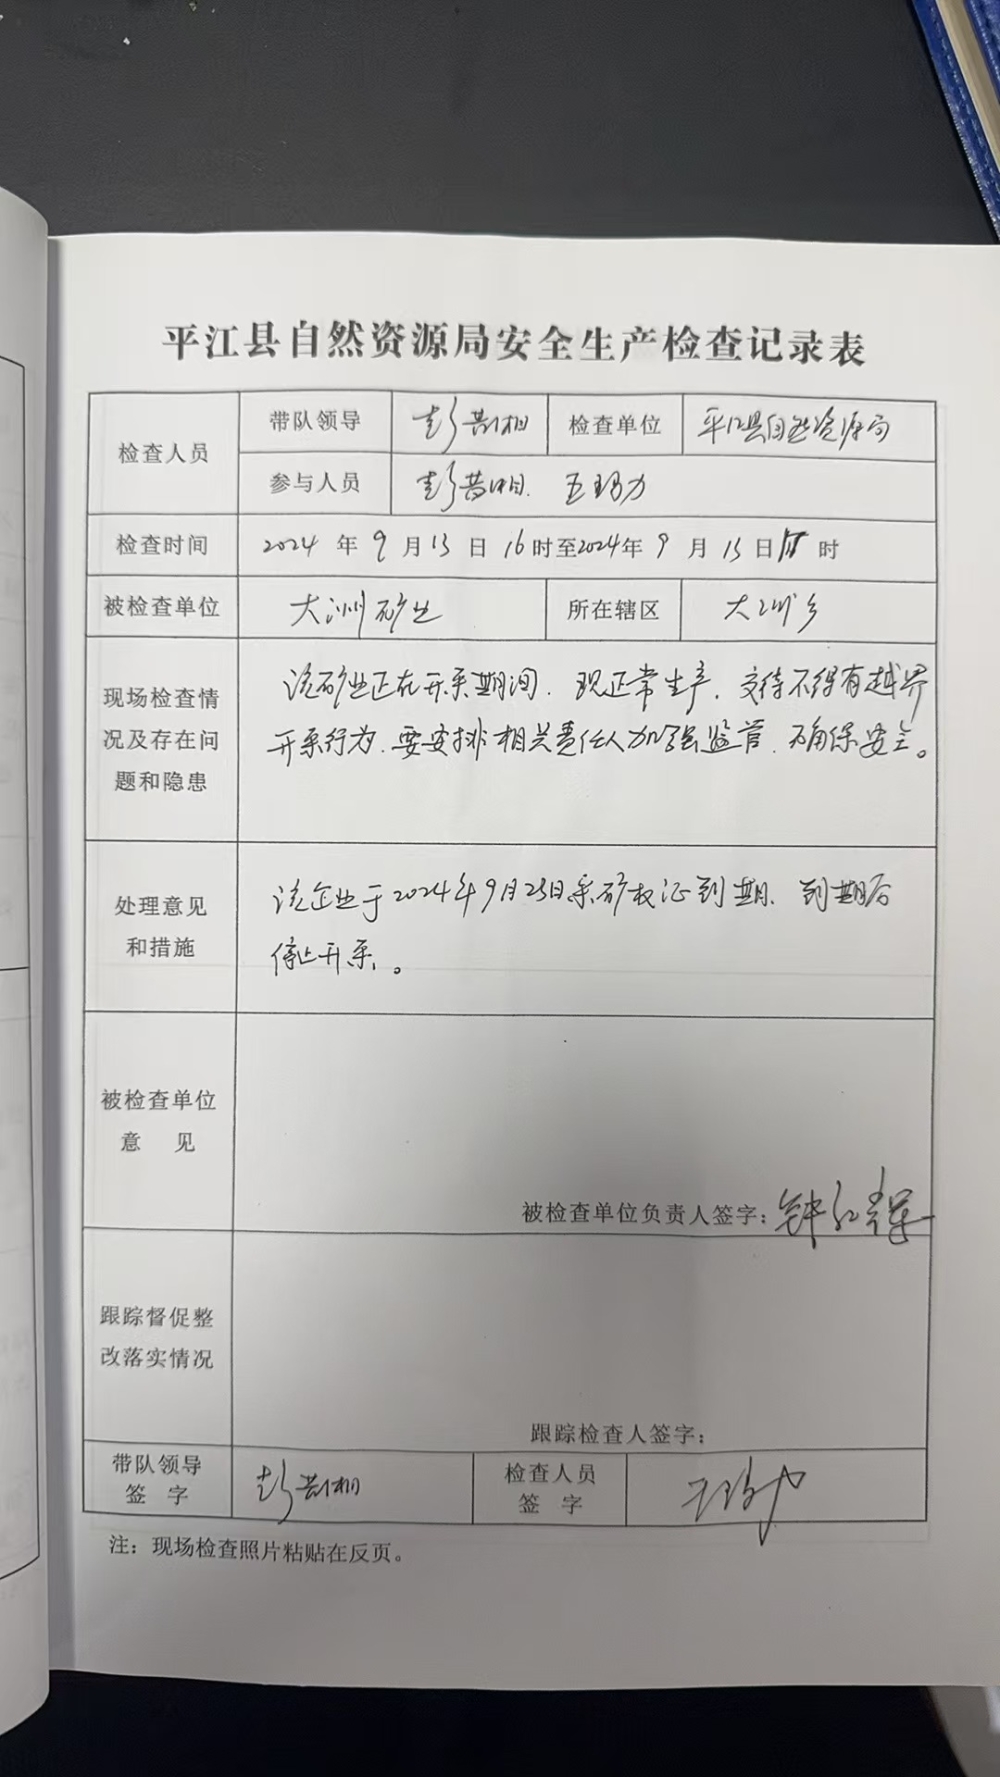 平江县自然资源局安全生产检查记录表
检查人员
带队领导
彭
检查单位
平江县自然资源局
参与人员
彭
检查时间
2024 年 9 月 13 日 16时至2024年 9 月 13 日 时
被检查单位
大洲矿业
所在辖区
大洲乡
现场检查情
况及存在问
题和隐患
该矿业正在开采期间，现正常生产，交待不得有越界
开采行为，要安排相关责任人加强监管，确保安全。
处理意见
和措施
该企业于2024年9月23日采矿权证到期，到期后
停止开采。
被检查单位
意 见
被检查单位负责人签字：钟红
跟踪督促整
改落实情况
跟踪检查人签字：
带队领导
签 字
彭
检查人员
签 字
注：现场检查照片粘贴在反页。